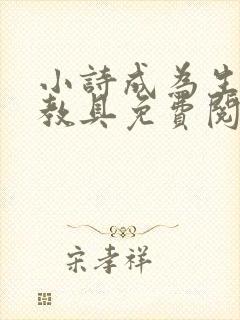 小詩成為生
教具免費閱
宋孝祥